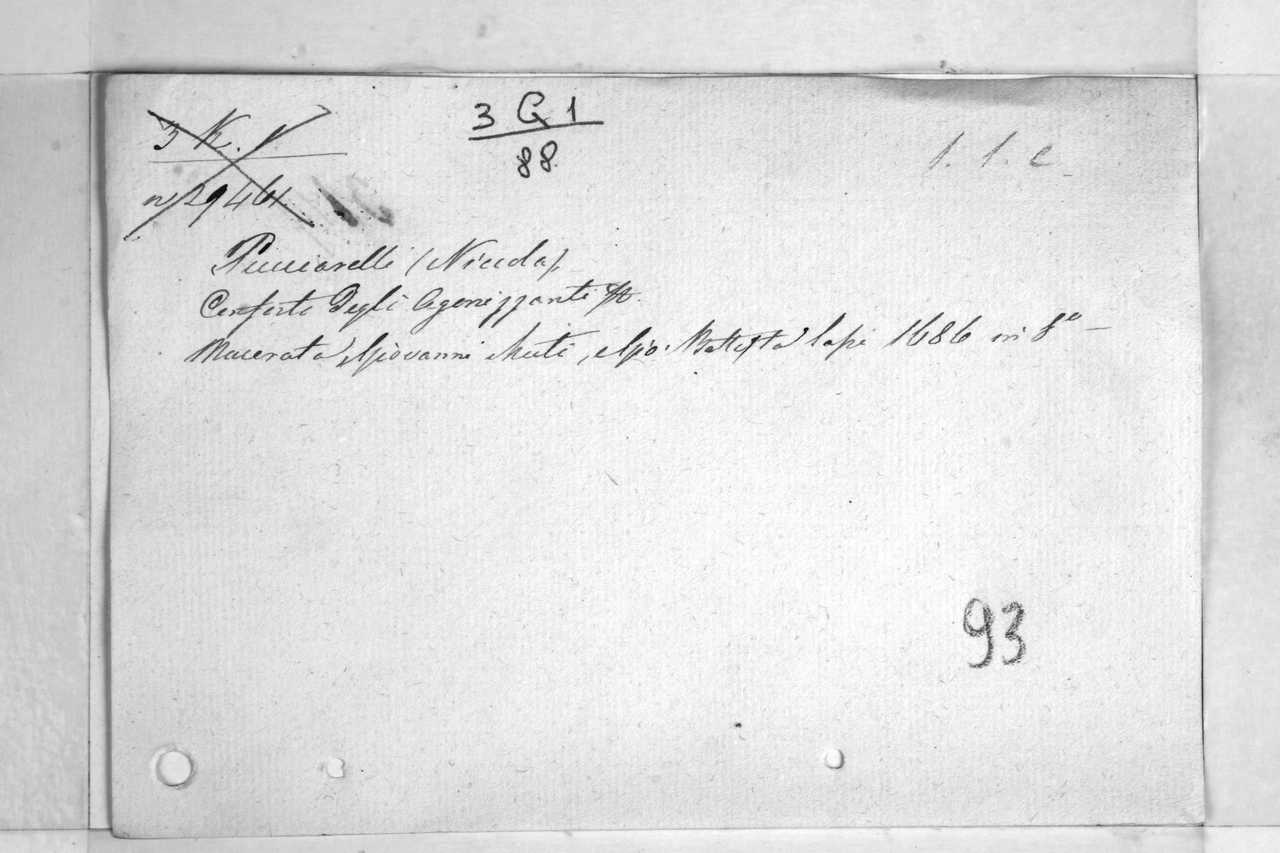 3 K. 1
n 2946
3 G 1
88
1. 1. c
Pucciarelli (Nicola)
Conforto Degli Agonizzanti
Macerata, Giovanni Muti, e Gio. Battista Lapi 1686 in 8º —
93